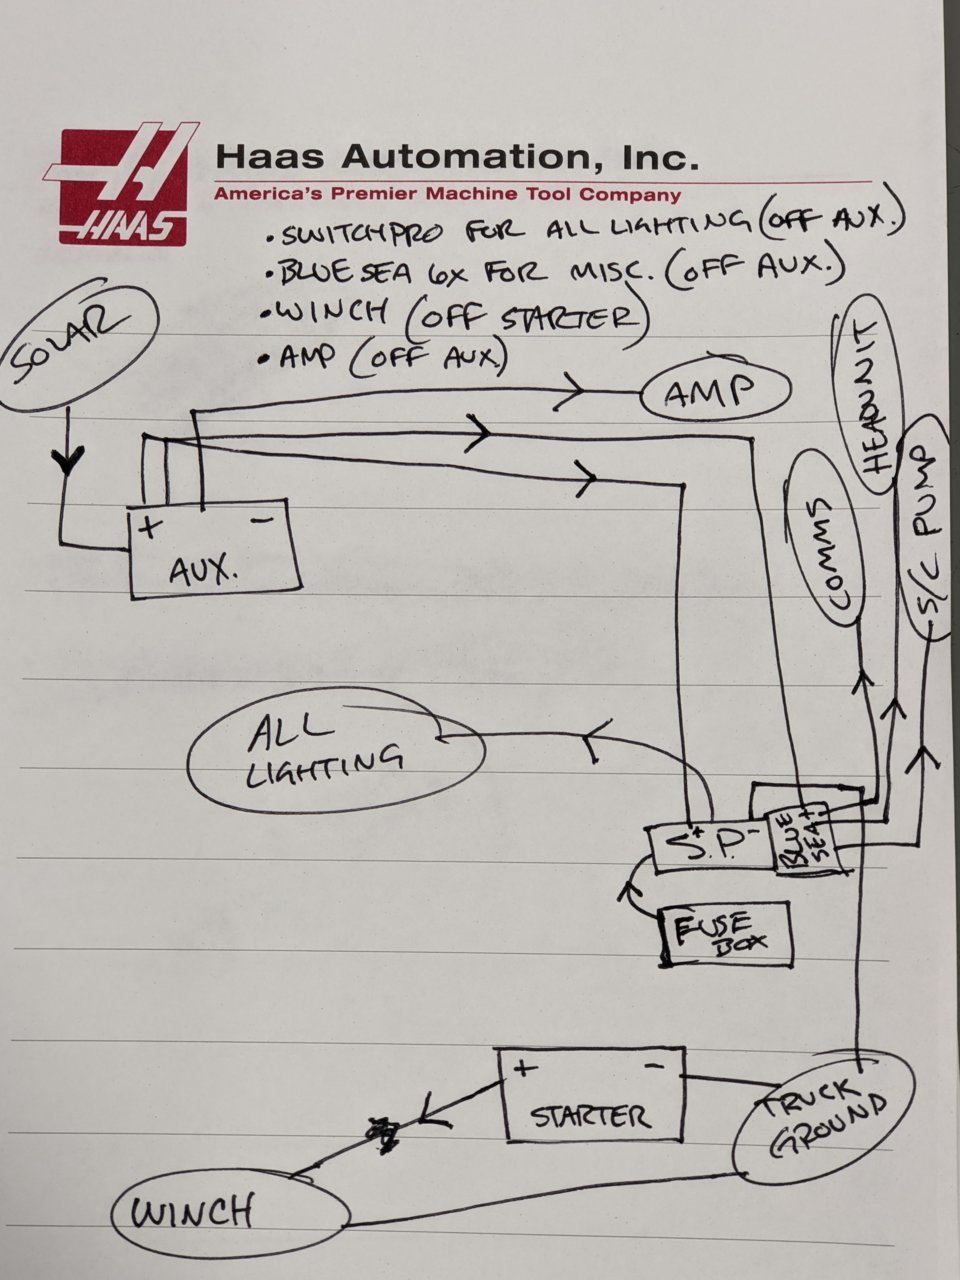 HAAS
Haas Automation, Inc.
America's Premier Machine Tool Company
• SWITCHPRO FOR ALL LIGHTING (OFF AUX.)
• BLUE SEA 6X FOR MISC. (OFF AUX.)
• WINCH (OFF STARTER)
• AMP (OFF AUX)
SOLAR
AMP
HEADUNIT
S/C PUMP
COMMS
+ −
AUX.
ALL
LIGHTING
+ −
S.P.
BLUE
SEA
+
FUSE
BOX
+ −
STARTER
TRUCK
GROUND
WINCH